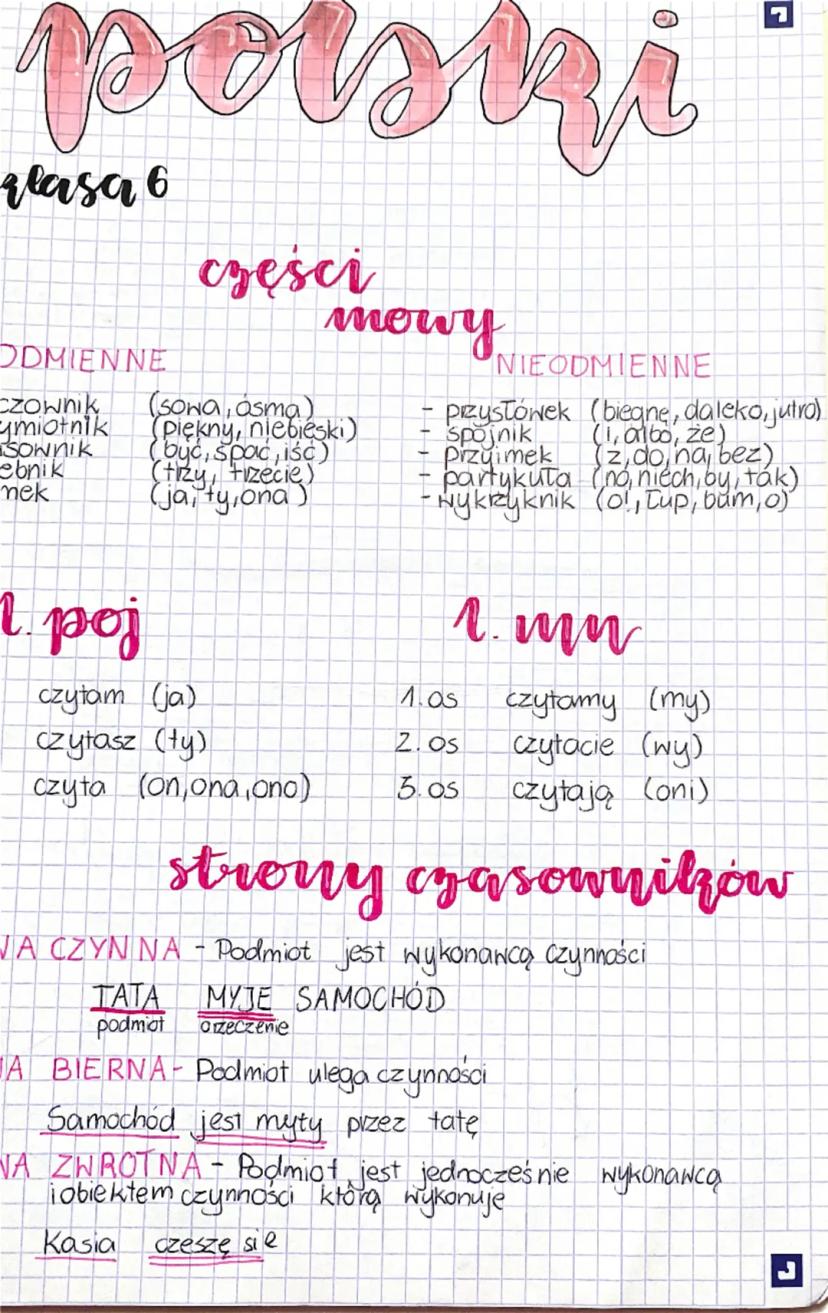 polski
klasa 6
części
mowy
ODMIENNE
NIEODMIENNE
czownik (sowa, osma)
ymiotnik (piękny, niebieski)
sownik (być, spać, iść)
ebnik (trzy, trzecie)
mek (ja, ty, ona)
- przysłówek (biegnę, daleko, jutro)
- spójnik (i, albo, że)
- przyimek (z, do, na, bez)
- partykuła (no, niech, by, tak)
- wykrzyknik (o!, łup, bum, o)
l. poj
l. mn
czytam (ja)
czytasz (ty)
czyta (on, ona, ono)
1. os czytamy (my)
2. os czytacie (wy)
3. os czytają (oni)
strony czasowników
NA CZYNNA - Podmiot jest wykonawcą czynności
TATA MYJE SAMOCHÓD
podmiot orzeczenie
NA BIERNA - Podmiot ulega czynności
Samochód jest myty przez tatę
NA ZWROTNA - Podmiot jest jednocześnie wykonawcą
i obiektem czynności którą wykonuje
Kasia czeszę się